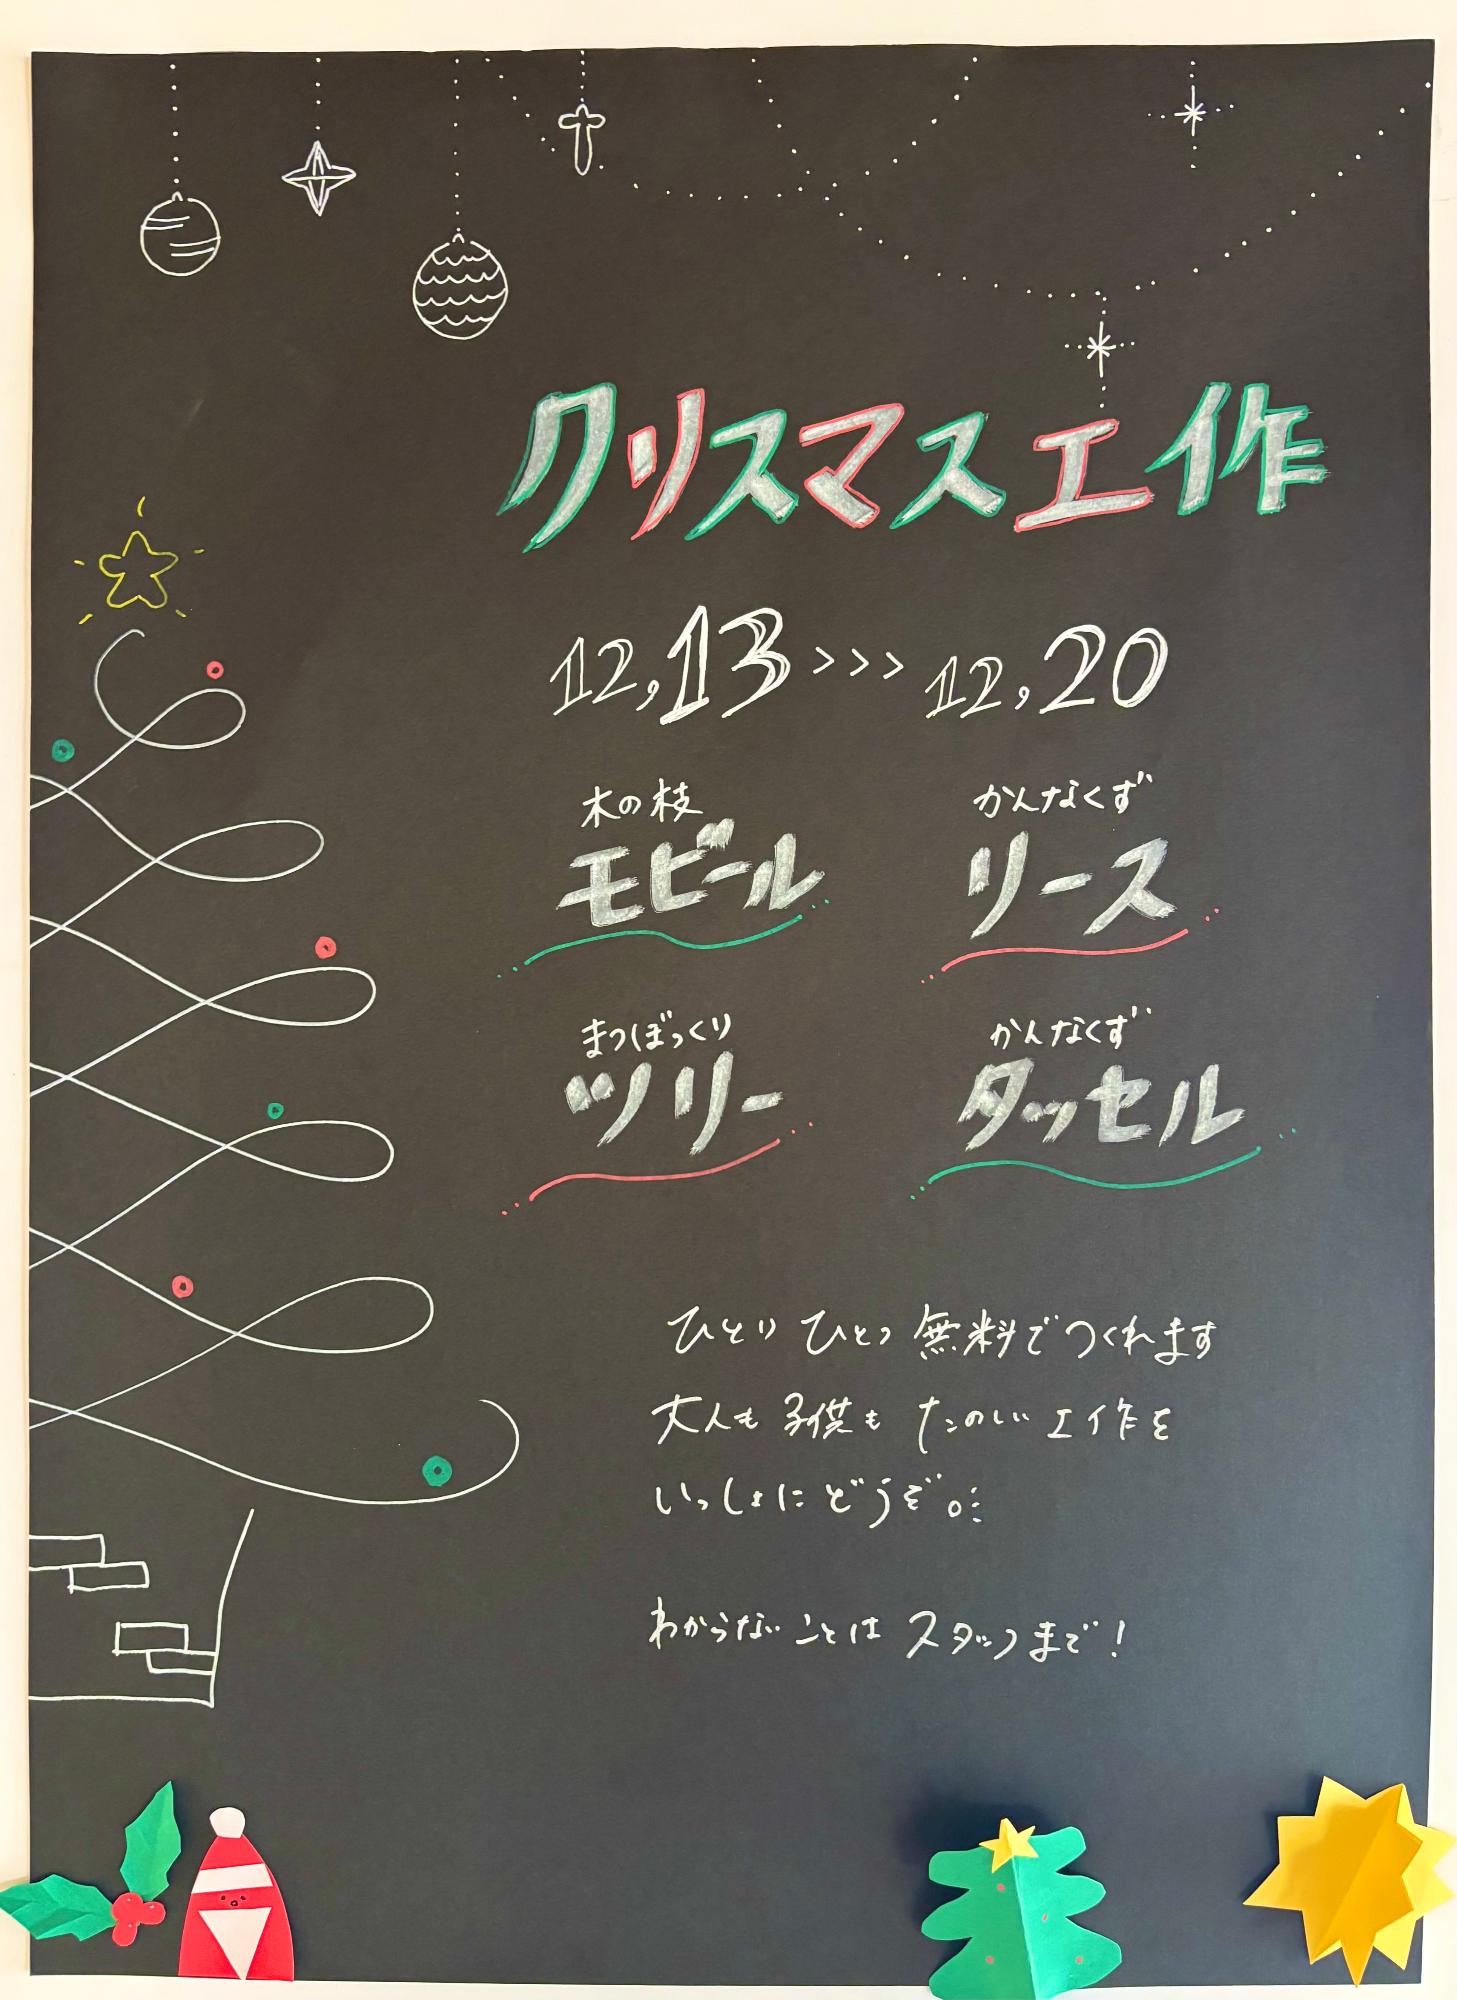 クリスマス工作
12,13 >>> 12,20
木の枝
モビール
かんなくず
リース
まつぼっくり
ツリー
かんなくず
タッセル
ひとり ひとつ 無料で つくれます
大人も 子供も たのしい 工作を
いっしょに どうぞ。
わからない ことは スタッフまで!